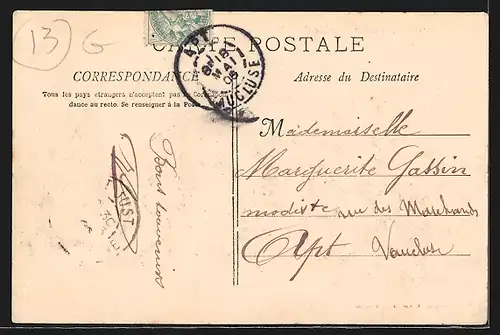 13 G
CARTE POSTALE
APT
18
MAI
06
VAUCLUSE
CORRESPONDANCE
Tous les pays étrangers n'acceptent pas la correspon-
dance au recto. Se renseigner à la Poste
Adresse du Destinataire
Mademoiselle
Marguerite Gassin
modiste rue des Marchands
Apt Vaucluse
Bons souvenirs